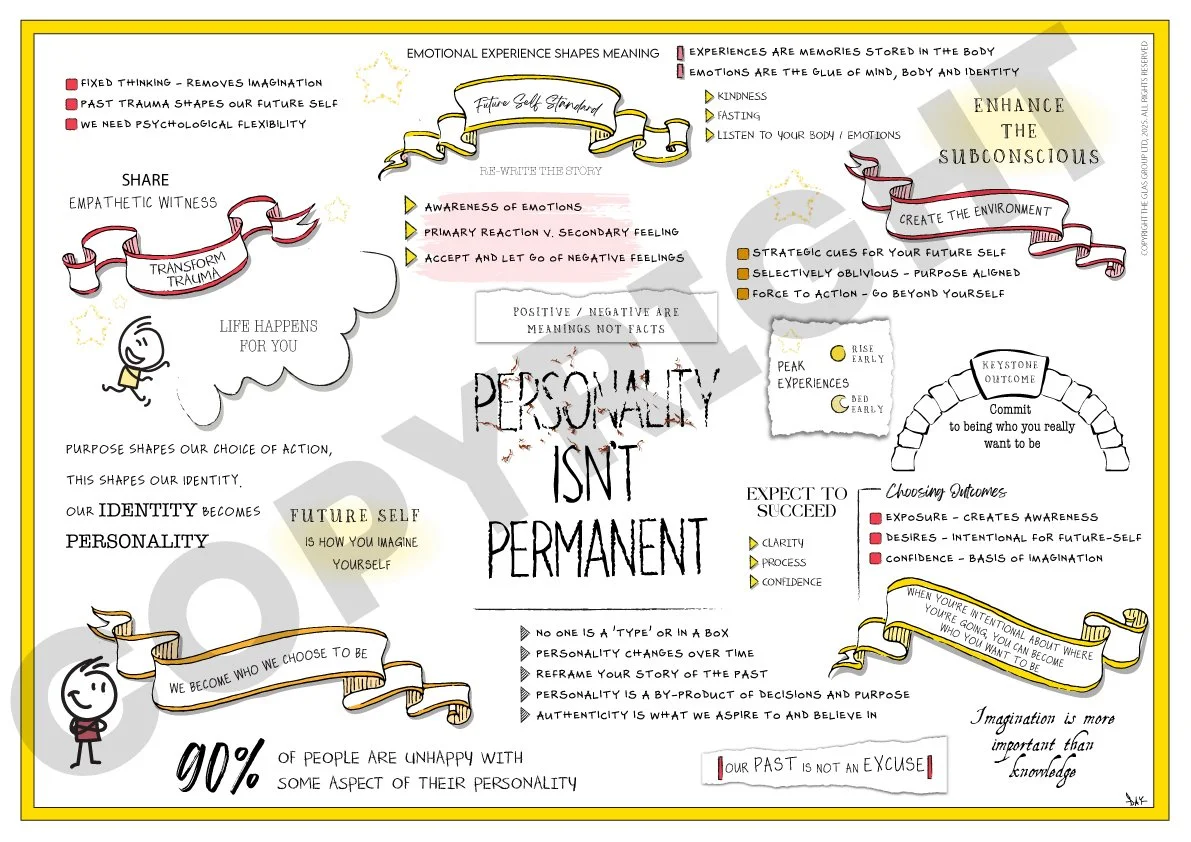 EMOTIONAL EXPERIENCE SHAPES MEANING
EXPERIENCES ARE MEMORIES STORED IN THE BODY
EMOTIONS ARE THE GLUE OF MIND, BODY AND IDENTITY
FIXED THINKING - REMOVES IMAGINATION
PAST TRAUMA SHAPES OUR FUTURE SELF
WE NEED PSYCHOLOGICAL FLEXIBILITY
Future Self Standard
KINDNESS
FASTING
LISTEN TO YOUR BODY / EMOTIONS
ENHANCE
THE
SUBCONSCIOUS
COPYRIGHT THE GLAS GROUP LTD, 2025. ALL RIGHTS RESERVED
SHARE
EMPATHETIC WITNESS
TRANSFORM
TRAUMA
RE-WRITE THE STORY
AWARENESS OF EMOTIONS
PRIMARY REACTION V. SECONDARY FEELING
ACCEPT AND LET GO OF NEGATIVE FEELINGS
CREATE THE ENVIRONMENT
STRATEGIC CUES FOR YOUR FUTURE SELF
SELECTIVELY OBLIVIOUS - PURPOSE ALIGNED
FORCE TO ACTION - GO BEYOND YOURSELF
LIFE HAPPENS
FOR YOU
POSITIVE / NEGATIVE ARE
MEANINGS NOT FACTS
PERSONALITY
ISN'T
PERMANENT
PEAK
EXPERIENCES
RISE
EARLY
BED
EARLY
KEYSTONE
OUTCOME
Commit
to being who you really
want to be
PURPOSE SHAPES OUR CHOICE OF ACTION,
THIS SHAPES OUR IDENTITY.
OUR IDENTITY BECOMES
PERSONALITY
FUTURE SELF
IS HOW YOU IMAGINE
YOURSELF
EXPECT TO
SUCCEED
CLARITY
PROCESS
CONFIDENCE
Choosing Outcomes
EXPOSURE - CREATES AWARENESS
DESIRES - INTENTIONAL FOR FUTURE-SELF
CONFIDENCE - BASIS OF IMAGINATION
WHEN YOU'RE INTENTIONAL ABOUT WHERE
YOU'RE GOING, YOU CAN BECOME
WHO YOU WANT TO BE
WE BECOME WHO WE CHOOSE TO BE
NO ONE IS A 'TYPE' OR IN A BOX
PERSONALITY CHANGES OVER TIME
REFRAME YOUR STORY OF THE PAST
PERSONALITY IS A BY-PRODUCT OF DECISIONS AND PURPOSE
AUTHENTICITY IS WHAT WE ASPIRE TO AND BELIEVE IN
90% OF PEOPLE ARE UNHAPPY WITH
SOME ASPECT OF THEIR PERSONALITY
OUR PAST IS NOT AN EXCUSE
Imagination is more
important than
knowledge
DAY
COPYRIGHT